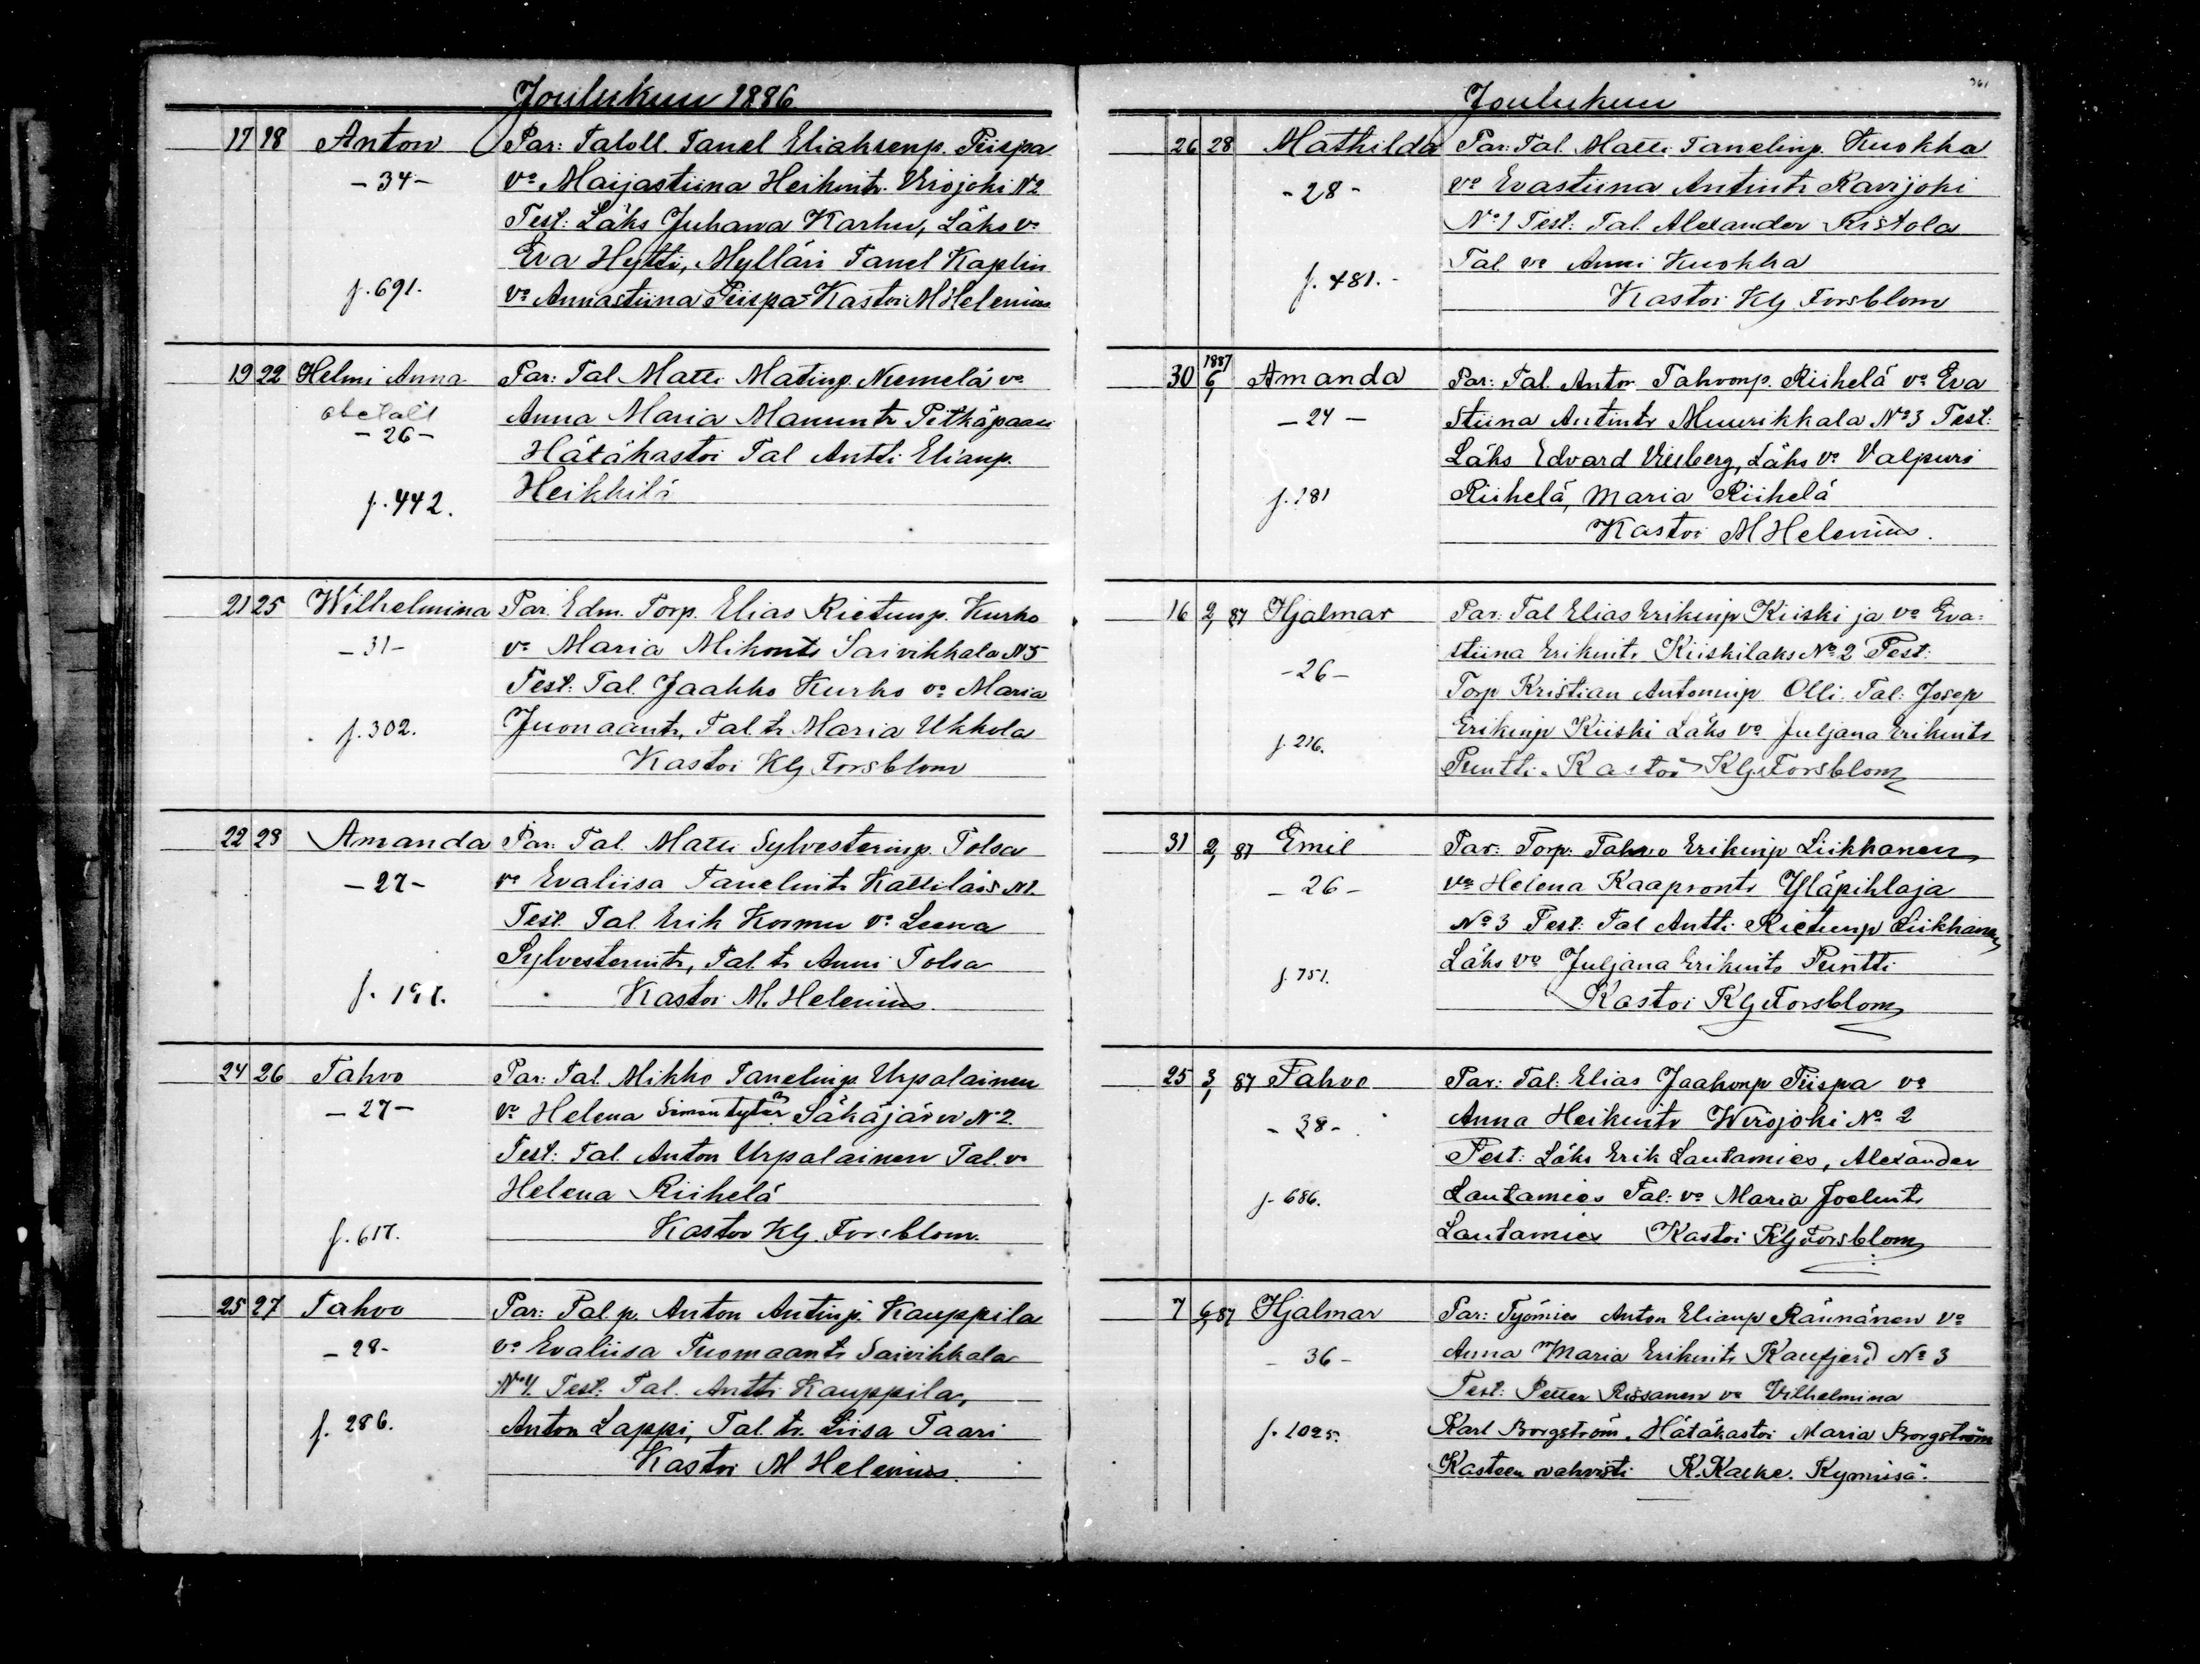 Joulukuu 1886
17 18 Anton Par: Taloll. Tanel Eliaksenp. Piispa
- 34 - vo Maijastiina Heikintr. Virojoki No 2
Test: Läks Juhana Karhu, Läks vo
Eva Hytti, Mylläri Tanel Kaplin
f. 691. vo Annastiina Piispa Kastoi M Helenius
19 22 Helmi Anna Par: Tal Matti Matinp. Niemelä vo
Anna Maria Manuntr Pitkäpaasi
- 26 -
Hätäkastoi Tal Antti Elianp.
f. 442. Heikkilä
21 25 Wilhelmina Par. Edm. Torp. Elias Rietunp. Kurko
- 31 - vo Maria Mikontr Saivikkala N5
Test: Tal. Jaakko Kurko vo Maria
f. 302. Juonaantr, Tal. tr Maria Ukkola
Kastoi KG Forsblom
22 28 Amanda Par: Tal. Matti Sylvesterinp. Tolsa
- 27 - vo Evaliisa Tanelintr Kattiläis N1.
Test Tal Erik Kormu vo Leena
Sylvesterintr, Tal. tr Anni Tolsa
f. Kastoi M. Helenius.
24 26 Tahvo Par: Tal. Mikko Tanelinp. Urpalainen
- 27 - vo Helena Simontytär Säkäjärvi N 2.
Test: Tal. Anton Urpalainen Tal. vo
Helena Riihelä
f. 617. Kastoi KG Forsblom.
25 27 Tahvo Par: Tal. p. Anton Antinp. Kauppila
- 28 - vo Evaliisa Tuomaantr Saivikkala
No 4. Test: Tal. Antti Kauppila,
f. 286. Anton Lappi, Tal. tr. Liisa Taari
Kastoi M Helenius.
361
Joulukuu
26 28 Mathilda Par: Tal. Matti Tanelinp. Kuokka
- 28 - vo Evastiina Antintr Ravijoki
No 1 Test: Tal. Alexander Ristola
f. 481. - Tal vo Anni Kuokka
Kastoi KG Forsblom
1887
30 6/1 Amanda Par: Tal. Anton Tahvonp. Riihelä vo Eva
- 24 - Stiina Antintr Muurikkala No 3 Test:
Läks Edvard Viiberg, Läks vo Valpuri
f. 181 Riihelä, Maria Riihelä
Kastoi M Helenius.
16 2/1 87 Hjalmar Par: Tal Elias Erikinp Kiiski ja vo Eva-
- 26 - stiina Erikintr Kiiskilaks No 2 Test:
Torp Kristian Antoninp Olli. Tal: Josep
f. 216. Erikinp Kiiski Läks vo Juljana Erikintr
Puntti. Kastoi KG Forsblom
31 2/1 87 Emil Par: Torp: Tahvo Erikinp Liikkanen
- 26 - vo Helena Kaapontr Yläpihlaja
No 3 Test: Tal Antti Rietunp Liikkanen
f. 751. Läks vo Juljana Erikintr Puntti
Kastoi KG Forsblom
25 3/1 87 Tahvo Par: Tal: Elias Jaakonp Piispa vo
- 38 - Anna Heikintr Wirojoki No 2
Test: Läks Erik Lautamies, Alexander
f. 686. Lautamies Tal: vo Maria Joelintr
Lautamies Kastoi KG Forsblom
7 6/1 87 Hjalmar Par: Työmies Anton Elianp Rännänen vo
- 36 - Anna Maria Erikintr No 3
Test: Petter Rissanen vo Vilhelmina
f. 1025. Karl Borgström. Hätäkastoi Maria Borgström
Kasteen vahvisti K. Kymissä.